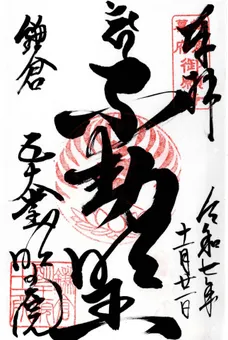 奉拝
令和七年
十一月廿一日
不動明王
鎌倉
五大堂明王院